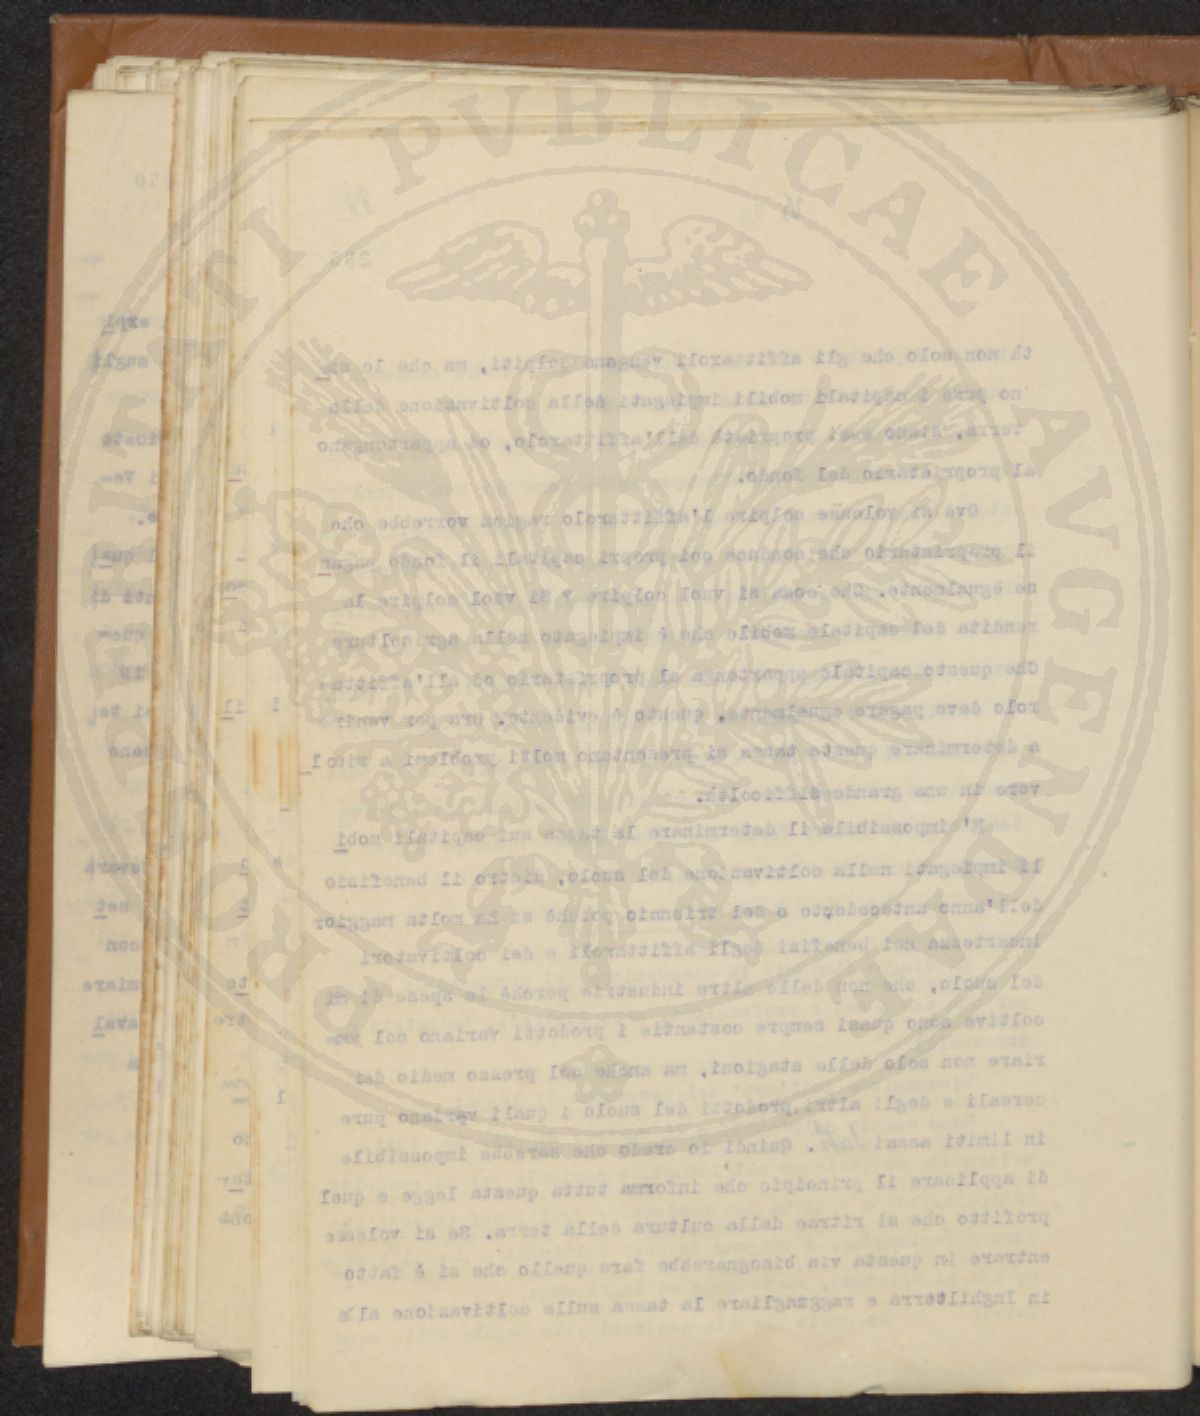 PROSPERITATI PVBLICAE AVGENDAE
tà non solo che gli affittaroli vengano colpiti, ma che lo sia
no pure i capitali mobili impiegati nella coltivazione della
terra, siano essi proprietà dell'affittarolo, od appartengano
al proprietario del fondo.
Ove si volesse colpire l'affittarolo ragion vorrebbe che
il proprietario che conduce coi propri capitali il fondo pagas
se egualmente. Che cosa si vuol colpire ? Si vuol colpire la
rendita del capitale mobile che è impiegato nella agricoltura
Che questo capitale appartenga al proprietario od all'affitta-
rolo deve pagare egualmente, questo è evidente. Ora per venir
a determinare questa tassa si presentano molti problemi a risol
vere in una grande difficoltà.
E' impossibile il determinare la tassa sui capitali mobi
li impiegati nella coltivazione del suolo, dietro il benefizio
dell'anno antecedente o del triennio poichè si ha molta maggior
incertezza nei benefizi degli affittaroli e dei coltivatori
del suolo, che non delle altre industrie perchè le spese di
coltiva sono quasi sempre costanti e i prodotti variano col va
riare non solo delle stagioni, ma anche col prezzo medio dei
cereali e degli altri prodotti del suolo i quali variano pure
in limiti assai lati. Quindi io credo che sarebbe impossibile
di applicare il principio che informa tutta questa legge e quel
profitto che si ritrae dalla cultura della terra. Se si volesse
entrare in questa via bisognerebbe fare quello che si è fatto
in Inghilterra e ragguagliare la tassa sulla coltivazione alla